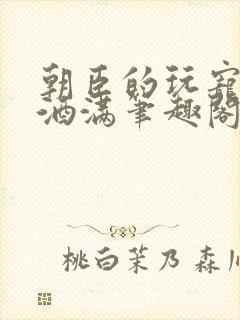 朝臣的玩宠
酒满笔趣阁
桃白茉乃 森川